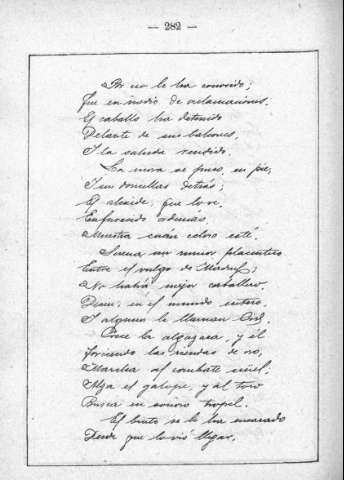 — 282 —
Por no le ha conocido;
Que en medio de aclamaciones,
El caballo ha detenido
Delante de sus balcones,
Y la saluda rendido.
La mora se puso en pie,
Y sus doncellas detrás;
El alcaide, que lo ve,
Enfurecido además
Muestra cuán celoso esté.
Suena un rumor placentero
Entre el vulgo de Madrid;
No habrá mejor caballero,
Dicen, en el mundo entero,
Y algunos le llaman Cid.
Crece la algazara, y él
Torciendo las riendas de oro,
Marcha al combate cruel.
Alza el galope, y al toro
Busca en sonoro tropel.
El bruto se le ha encarado
Desde que lo vió llegar,